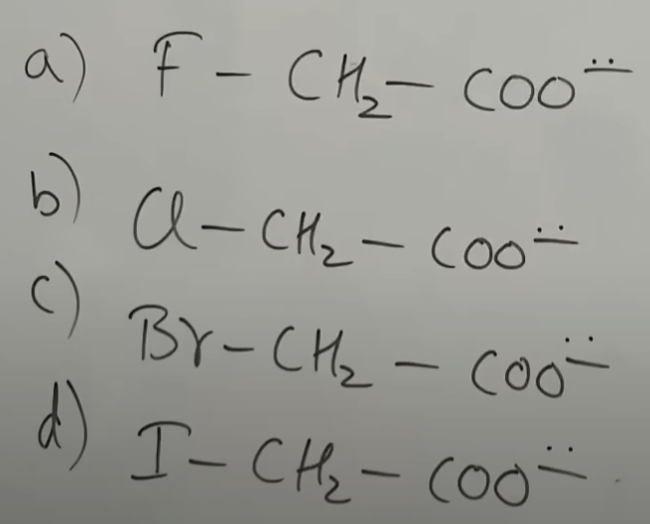 a) F - CH₂ - COO⁻
b) Cl - CH₂ - COO⁻
c) Br - CH₂ - COO⁻
d) I - CH₂ - COO⁻